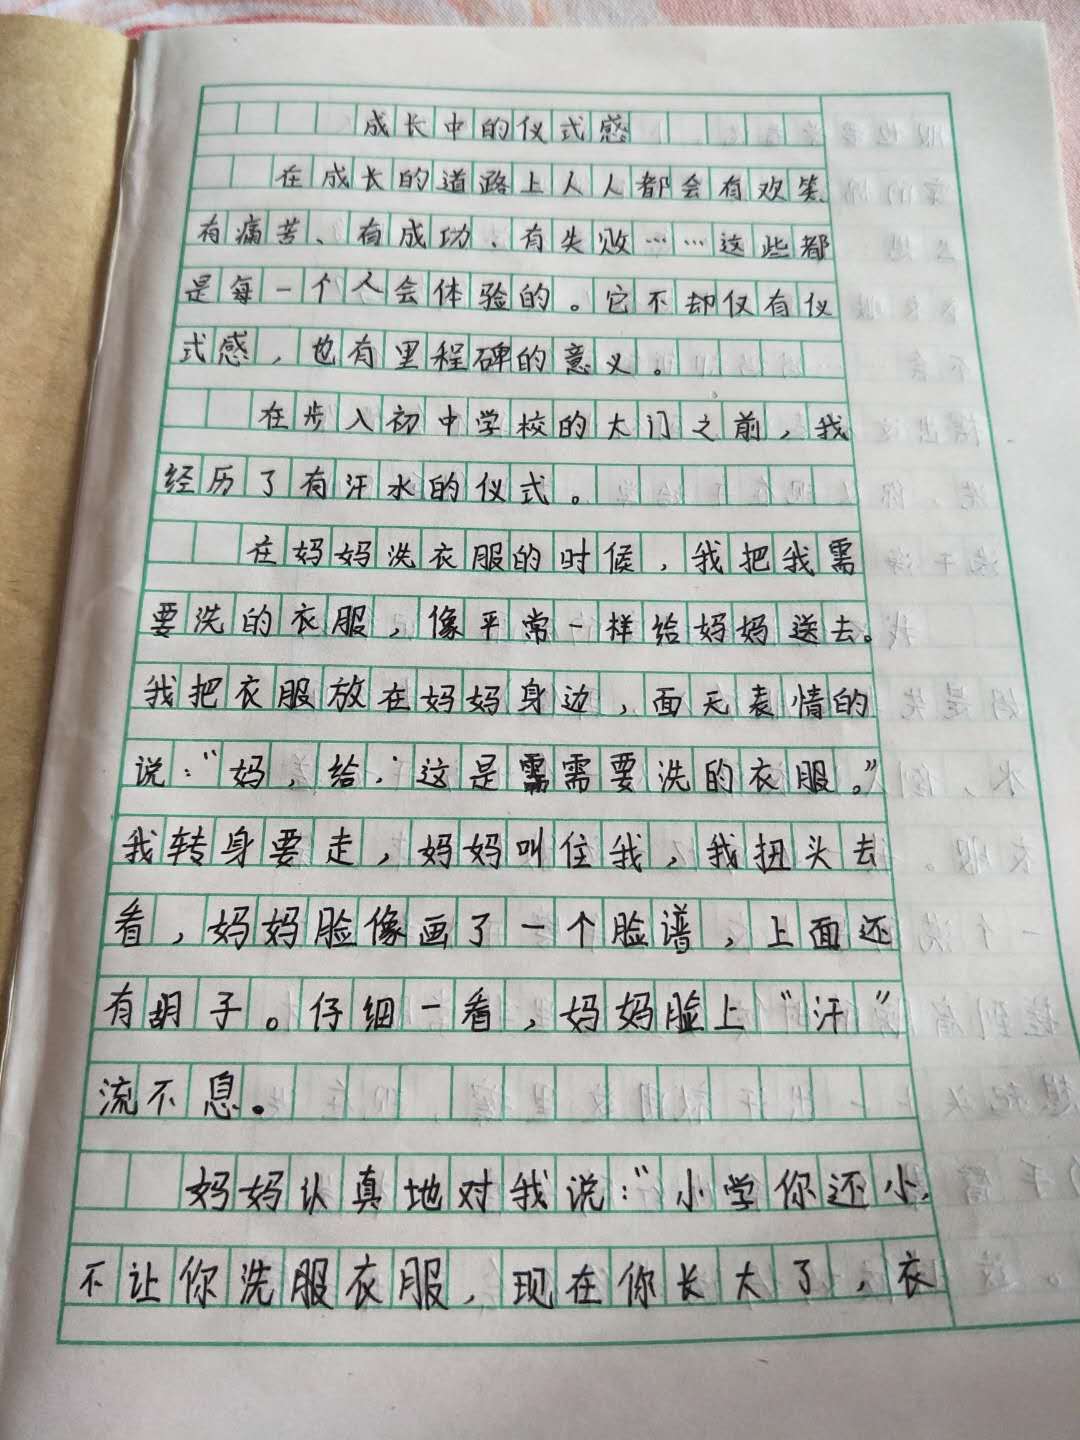 成长中的仪式感
在成长的道路上人人都会有欢笑、
有痛苦、有成功、有失败……这些都
是每一个人会体验的。它不却仅有仪
式感，也有里程碑的意义。
在步入初中学校的大门之前，我
经历了有汗水的仪式。
在妈妈洗衣服的时候，我把我需
要洗的衣服，像平常一样给妈妈送去。
我把衣服放在妈妈身边，面无表情的
说：“妈，给，这是需要洗的衣服。”
我转身要走，妈妈叫住我，我扭头去
看，妈妈脸像画了一个脸谱，上面还
有胡子。仔细一看，妈妈脸上“汗”
流不息。
妈妈认真地对我说：“小学你还小，
不让你洗服衣服，现在你长大了，衣